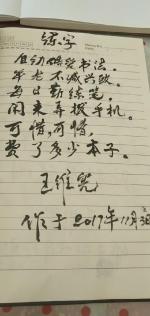 练字
自幼酷爱书法。
年老不减兴致。
每日勤练笔，
闲来弄搜手机。
可惜，可惜，
费了多少本子。
王维宪
作于2017年11月3日